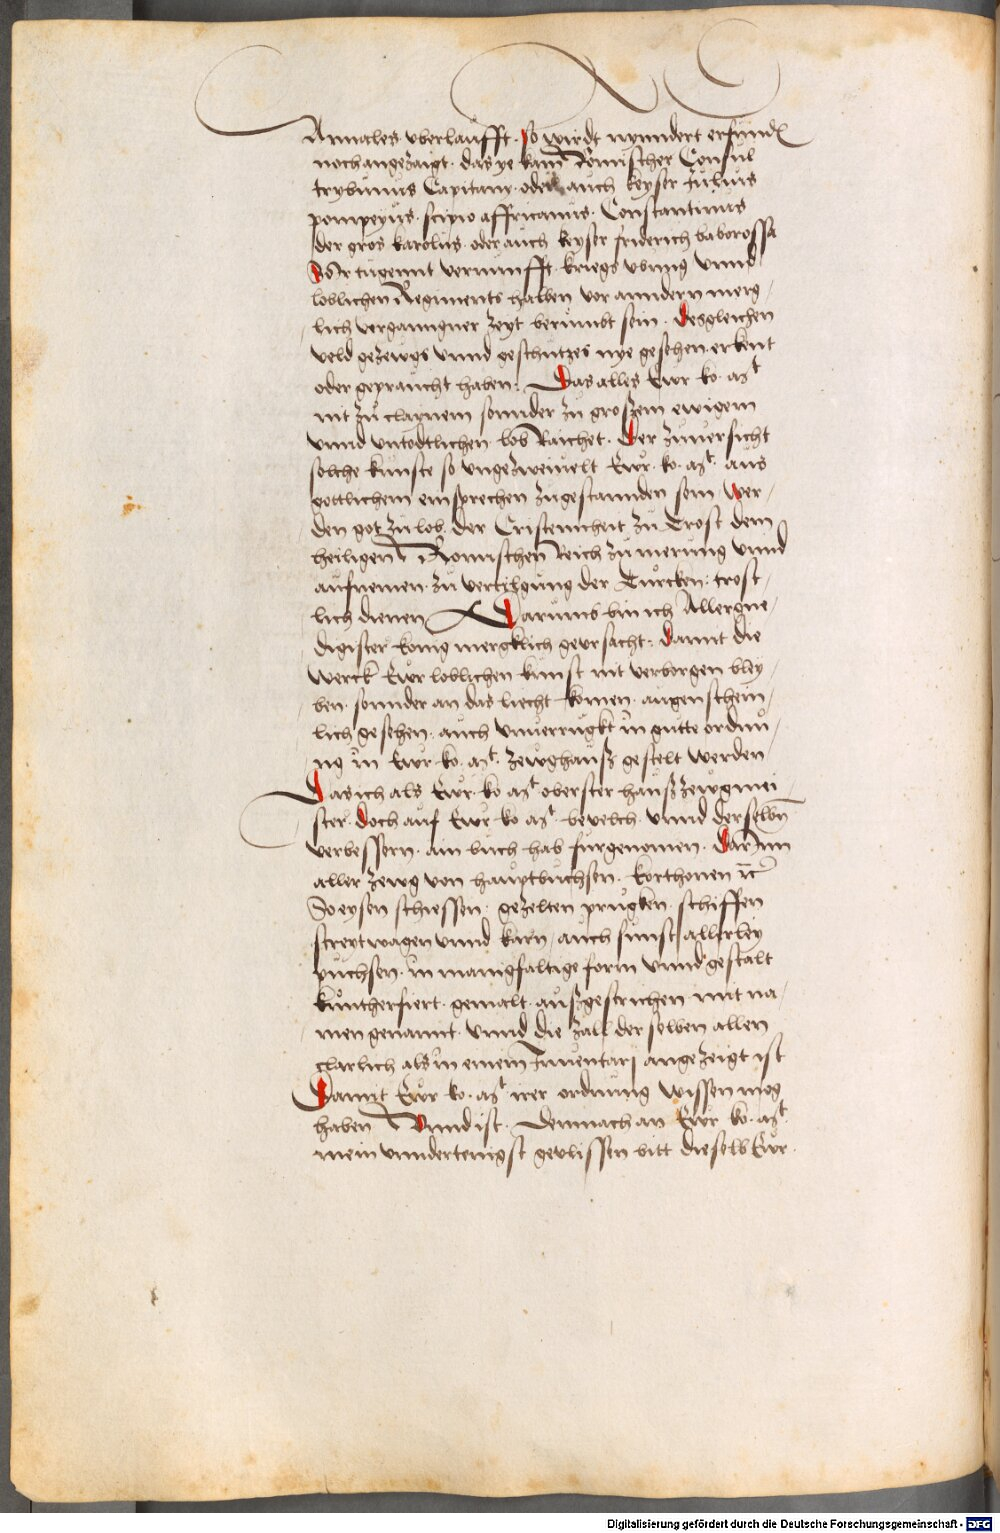 Annales uberlaufft. so wirdt nynndert erfunden
noch angezaigt. das ye kain Romischer Consul
trybunus Capitany. oder auch keyser Julius
pompeyus. scipio affricanus. Constantinus
der gros karolus. oder auch keyser friderich barborossa
Der tugennt vernunfft. kriegs ubung unnd
loblichen Regiments halben vor anndern merg,
lich vergangner zeyt berumbt sein. Desgleichen
veld gezewgs unnd geschutzes nye gesehen. erkent
oder gepraucht haben. Das alles Ewr ko. Mt.
nit zu clainem sonnder zu groszem ewigem
unnd untodtlichen lob Raichet. Der zuversicht
solche kunste so ungezweivelt Ewr. ko. Mt. aus
gottlichem einsprechen zugestannden sein. Wer,
den got zu lob. der Cristennheit zu Trost dem
heiligen Romischen Reich zu merung unnd
aufnemen. zu vertilgung der Turcken. trost,
lich dienen Darumb bin ich Allergne,
digister konig mergklich geursacht. Damit die
werck Ewr loblichen kunst nit verborgen bley,
ben. sonnder an das liecht komen. augenschein,
lich gesehen. auch unverrugkt in gutte ordnu,
ng in Ewr. ko. Mt. zewghausz gestelt werden
Das ich als Ewr. ko. Mt. oberster hauszzewgmei,
ster. Doch auf Ewr ko Mt. bevelch. unnd derselbn
verbessern. ain buch hab furgenomen. Darinn
aller zewg von hauptbuchsen. Korthonen rc
So eysen schiessen. gezelten prugken. schiffen
streytwagen unnd karn, auch sunst allerley
puchsen. in manigfaltige form unnd gestalt
kuntherfiert. gemalt. auszgestrichen mit na,
men genannt. unnd die zall derselben allen
clarlich als in einem Inventari angezeigt ist
Damit Ewr ko. Mt. irer ordnung wissen mog
haben Unnd ist. Demnach an Ewr ko. Mt.
mein unndertenigst gevlissen bitt dieselb Ewr.
Digitalisierung gefördert durch die Deutsche Forschungsgemeinschaft - DFG